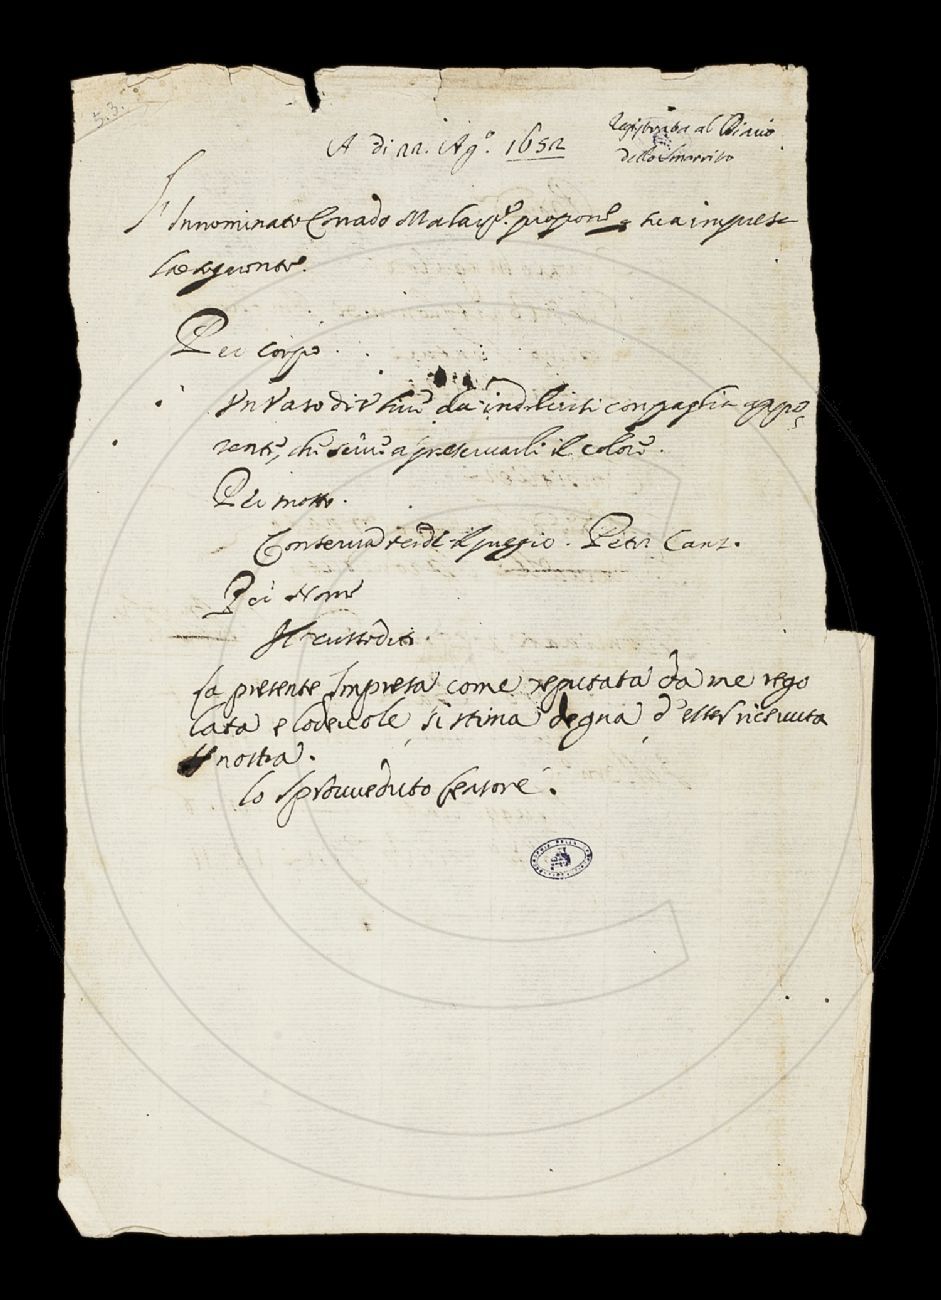 53.
A dì 22. Ag.º 1652
Registrata al Diario
dello Smarrito
L'Innominato Corrado Malasp.ª propone p sua impresa
la seguente.
Per corpo.
Un Vaso di Vlive da indolcirsi con paglia
che serve a preservarli il colore.
Per motto.
Conserva verde il pregio. Petr. Canz.
Per Nome
Il custodito.
La presente Impresa come reputata da me rego
lata e lodevole si stima degna d'esser ricevuta
p nostra.
Lo Sprovveduto Censore.